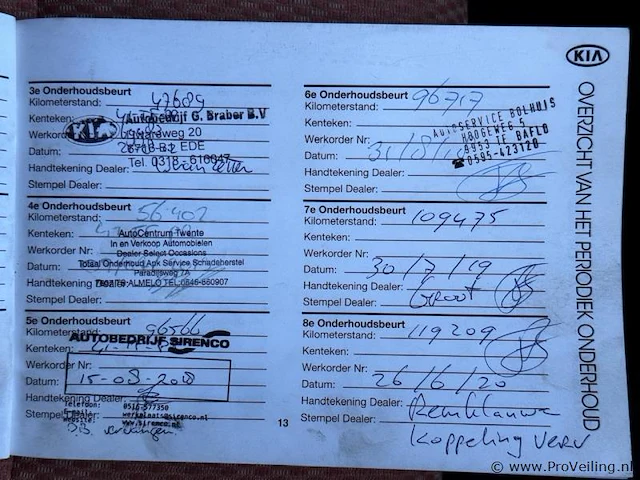 3e Onderhoudsbeurt
Kilometerstand: 47689
Kenteken:
Autobedrijf G. Braber B.V
KIA
Werkorder Nr:
Datum:
Tel. 0318 - 616047
Handtekening Dealer:
Stempel Dealer:
4e Onderhoudsbeurt
Kilometerstand: 56402
Kenteken:
AutoCentrum Twente
In en Verkoop Automobielen
Werkorder Nr:
Dealer Select Occasions
Datum:
Totaal Onderhoud Apk Service Schadeherstel
Paradijsweg 7A
Handtekening Dealer:
ALMELO TEL:0546-860907
Stempel Dealer:
5e Onderhoudsbeurt
Kilometerstand:
AUTOBEDRIJF SIRENCO
Kenteken:
Werkorder Nr:
Datum: 15-08-2018
Handtekening Dealer:
Telefoon: 0516-577350
Stempel Dealer:
www.sirenco.nl
vervangen
13
6e Onderhoudsbeurt
Kilometerstand: 96717
Kenteken:
AUTOSERVICE BOLHUIS
HOOGEWEG 5
Werkorder Nr:
9953 TF BAFLO
Datum: 31/8/
0595-423120
Handtekening Dealer:
Stempel Dealer:
7e Onderhoudsbeurt
Kilometerstand: 109475
Kenteken:
Werkorder Nr:
Datum: 30/7/19
Handtekening Dealer:
Stempel Dealer: Groot
8e Onderhoudsbeurt
Kilometerstand: 119209
Kenteken:
Werkorder Nr:
Datum: 26/6/20
Handtekening Dealer:
Stempel Dealer: Remklauw
Koppeling verv
KIA
OVERZICHT VAN HET PERIODIEK ONDERHOUD
© www.ProVeiling.nl